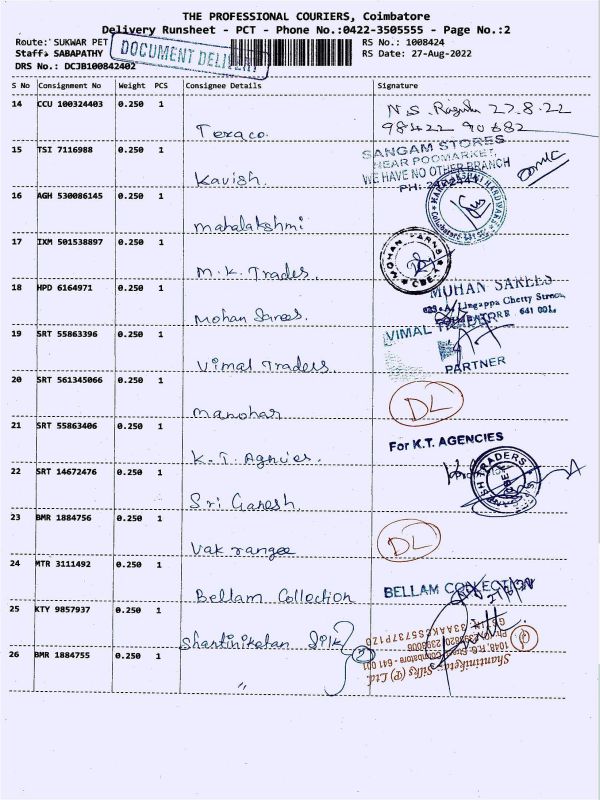 THE PROFESSIONAL COURIERS, Coimbatore
Delivery Runsheet - PCT - Phone No.:0422-3505555 - Page No.:2
Route: SUKWAR PET
RS No.: 1008424
Staff: SABAPATHY
RS Date: 27-Aug-2022
DOCUMENT DELIVERY
DRS No.: DCJB100842402
S No Consignment No Weight PCS Consignee Details Signature
14 CCU 100324403 0.250 1
Texaco.
N.S. 27.8.22
98422 90682
15 TSI 7116988 0.250 1
Kavish.
SANGAM STORES
NEAR POOMARKET,
WE HAVE NO OTHER BRANCH
PH:
16 AGH 530086145 0.250 1
Mahalakshmi
17 IXM 501538897 0.250 1
M.K. Traders.
MOHAN
CBE-1
18 HPD 6164971 0.250 1
Mohan Sarees.
MOHAN SAREES
Lingappa Chetty Street,
COIMBATORE 641 001.
19 SRT 55863396 0.250 1
Vimal Traders.
VIMAL TRADERS
PARTNER
20 SRT 561345066 0.250 1
Manohar
DL
21 SRT 55863406 0.250 1
K.T. Agencies.
For K.T. AGENCIES
22 SRT 14672476 0.250 1
Sri Ganesh.
TRADERS
23 BMR 1884756 0.250 1
Vak rangee
DL
24 MTR 3111492 0.250 1
Bellam Collection
BELLAM COLLECTION
25 KTY 9857937 0.250 1
Shantiniketan Silk
26 BMR 1884755 0.250 1
〃
2
Shantiniketan Silks (P) Ltd.
Coimbatore - 641 001